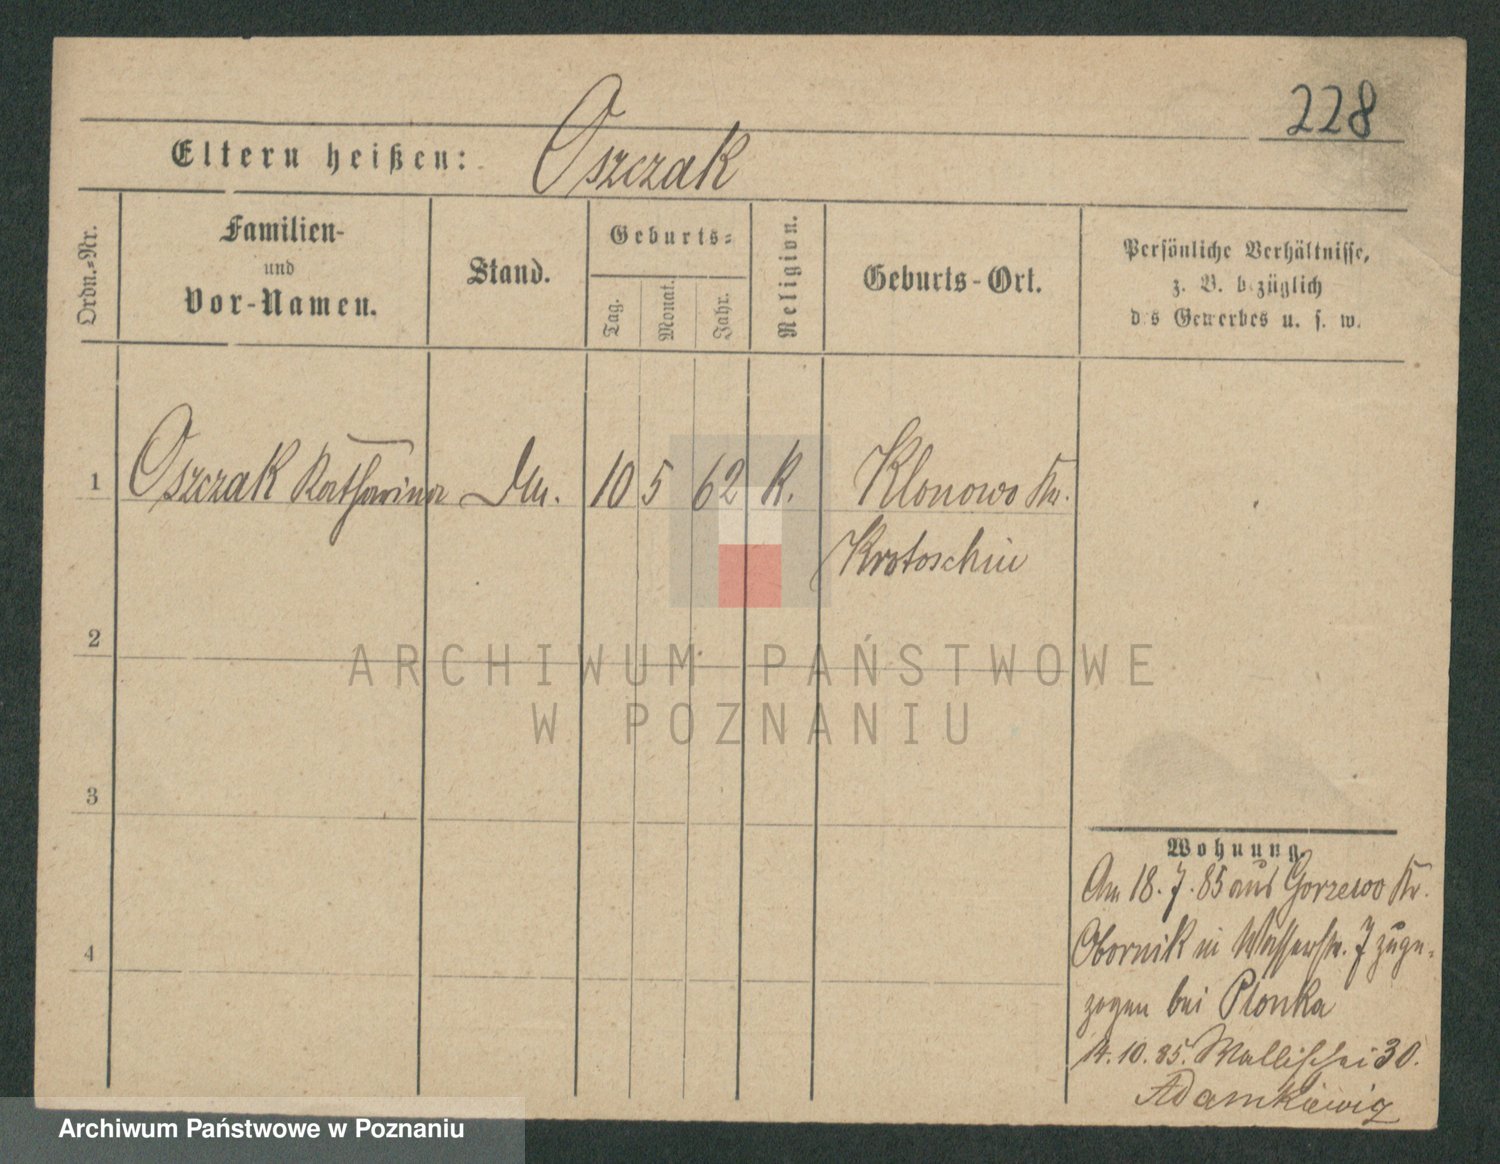 228
Eltern heißen: Oszczak
Ordn.-Nr.
Familien-
und
Vor-Namen.
Stand.
Geburts-
Tag.
Monat.
Jahr.
Religion.
Geburts-Ort.
Persönliche Verhältnisse,
z. B. bezüglich
des Gewerbes u. s. w.
1 Oszczak Katharina 10 5 62 K. Klonowo Kr.
Krotoschin
2
3
4
Wohnung.
Am 18.7.85 aus Gorzewo Kr.
Obornik in Wasserstr. 7 zuge-
zogen bei Plonka
14.10.85. Wallischei 30.
Adamkiewicz
ARCHIWUM PAŃSTWOWE
W POZNANIU
Archiwum Państwowe w Poznaniu